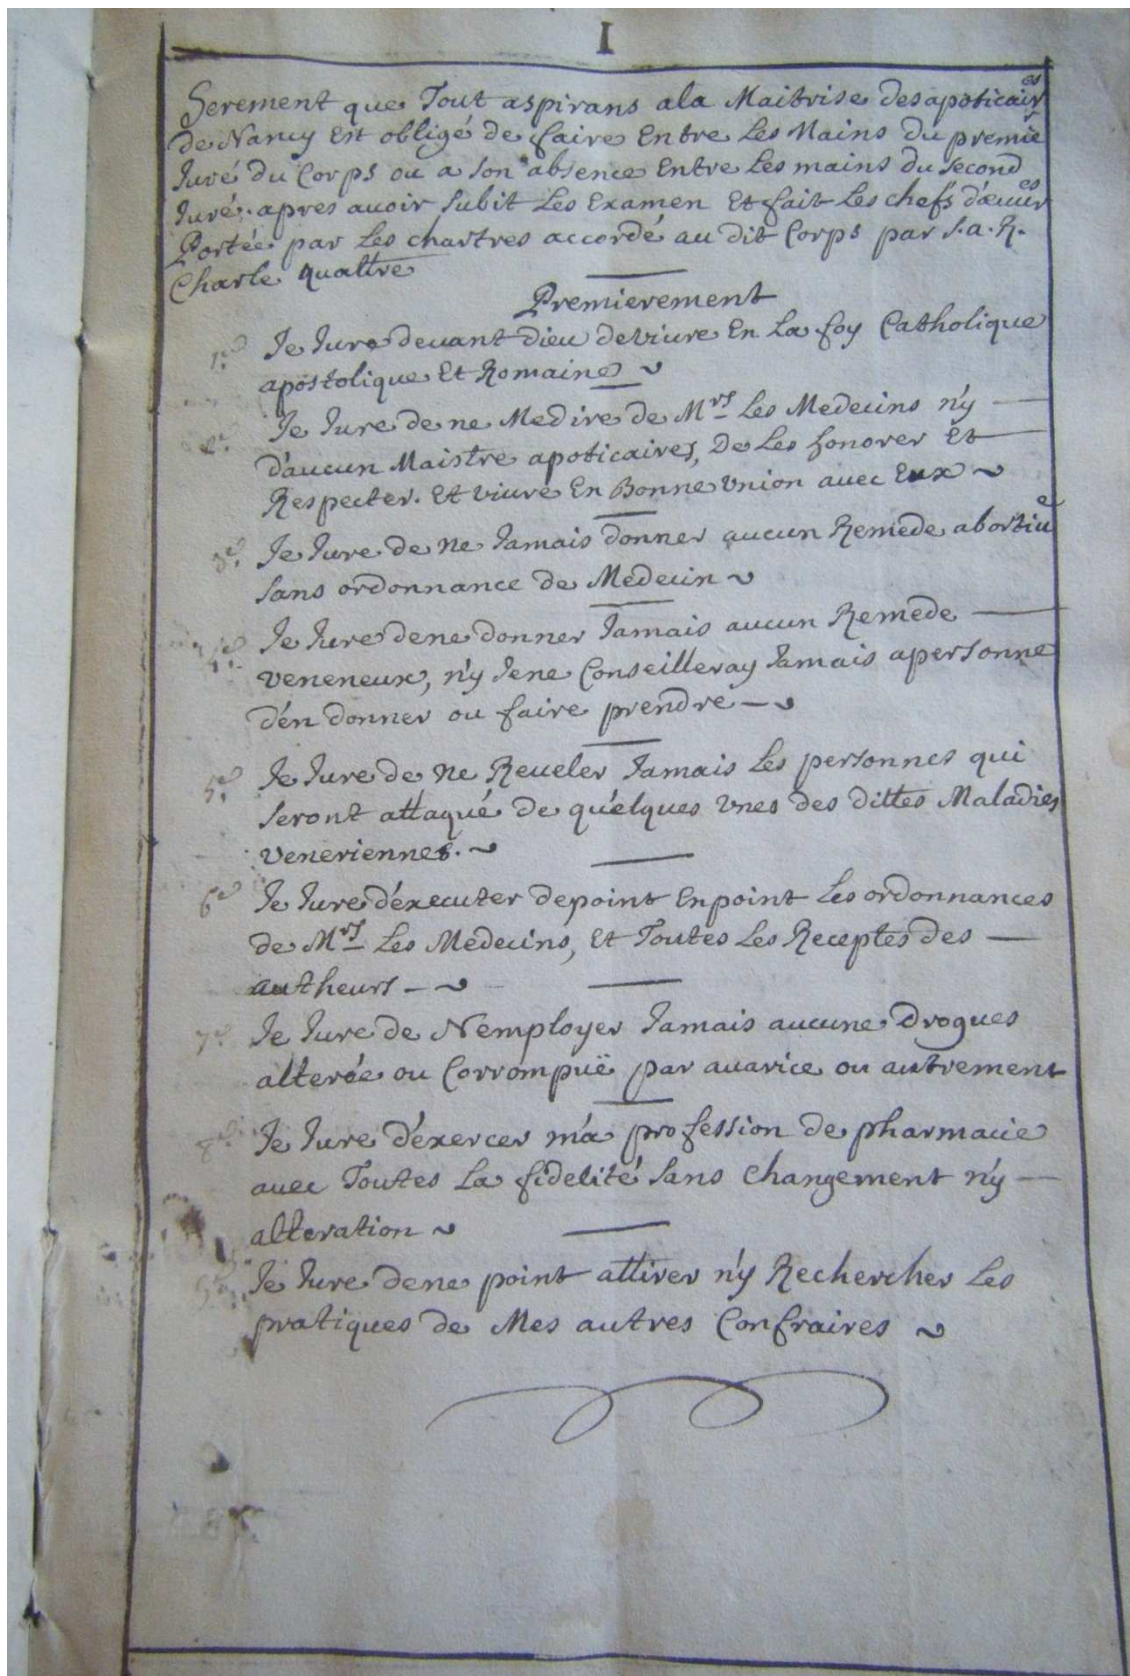 I
Serement que Tout aspirans a la Maitrise des apoticaires
de Nancy Est obligé de faire Entre Les Mains du premier
Juré du Corps ou a son absence Entre Les mains du second
Juré. apres avoir subit Les Examen Et fait Les chefs d'œuvres
Portée par Les chartres accordé au dit Corps par S. a. R.
Charle quattre
Premierement
1.e Je Jure devant Dieu de vivre En La foy Catholique
apostolique Et Romaine
2.e Je Jure de ne Medire de Mrs Les Medecins n'y
d'aucun Maistre apoticaires, De Les honorer Et
Respecter. Et vivre En Bonne Union avec Eux
3.e Je Jure de Ne Jamais donner aucun Remede abortive
sans ordonnance de Medecin
4.e Je Jure de ne donner Jamais aucun Remede
veneneux, n'y Je ne Conseilleray Jamais a personne
d'en donner ou faire prendre
5.e Je Jure de Ne Reveler Jamais Les personnes qui
seront attaqué de quélques Unes des dittes Maladies
veneriennes.
6.e Je Jure d'éxecuter de point En point Les ordonnances
de Mrs Les Medecins, Et Toutes Les Receptes des
autheurs
7.e Je Jure de N'employer Jamais aucune Drogues
alterée ou Corrompuë par avarice ou autrement
8.e Je Jure d'éxercer m'a profession de pharmacie
avec Toutes La fidelité sans changement n'y
alteration
Je Jure de ne point attirer n'y Rechercher Les
pratiques de Mes autres Confraires